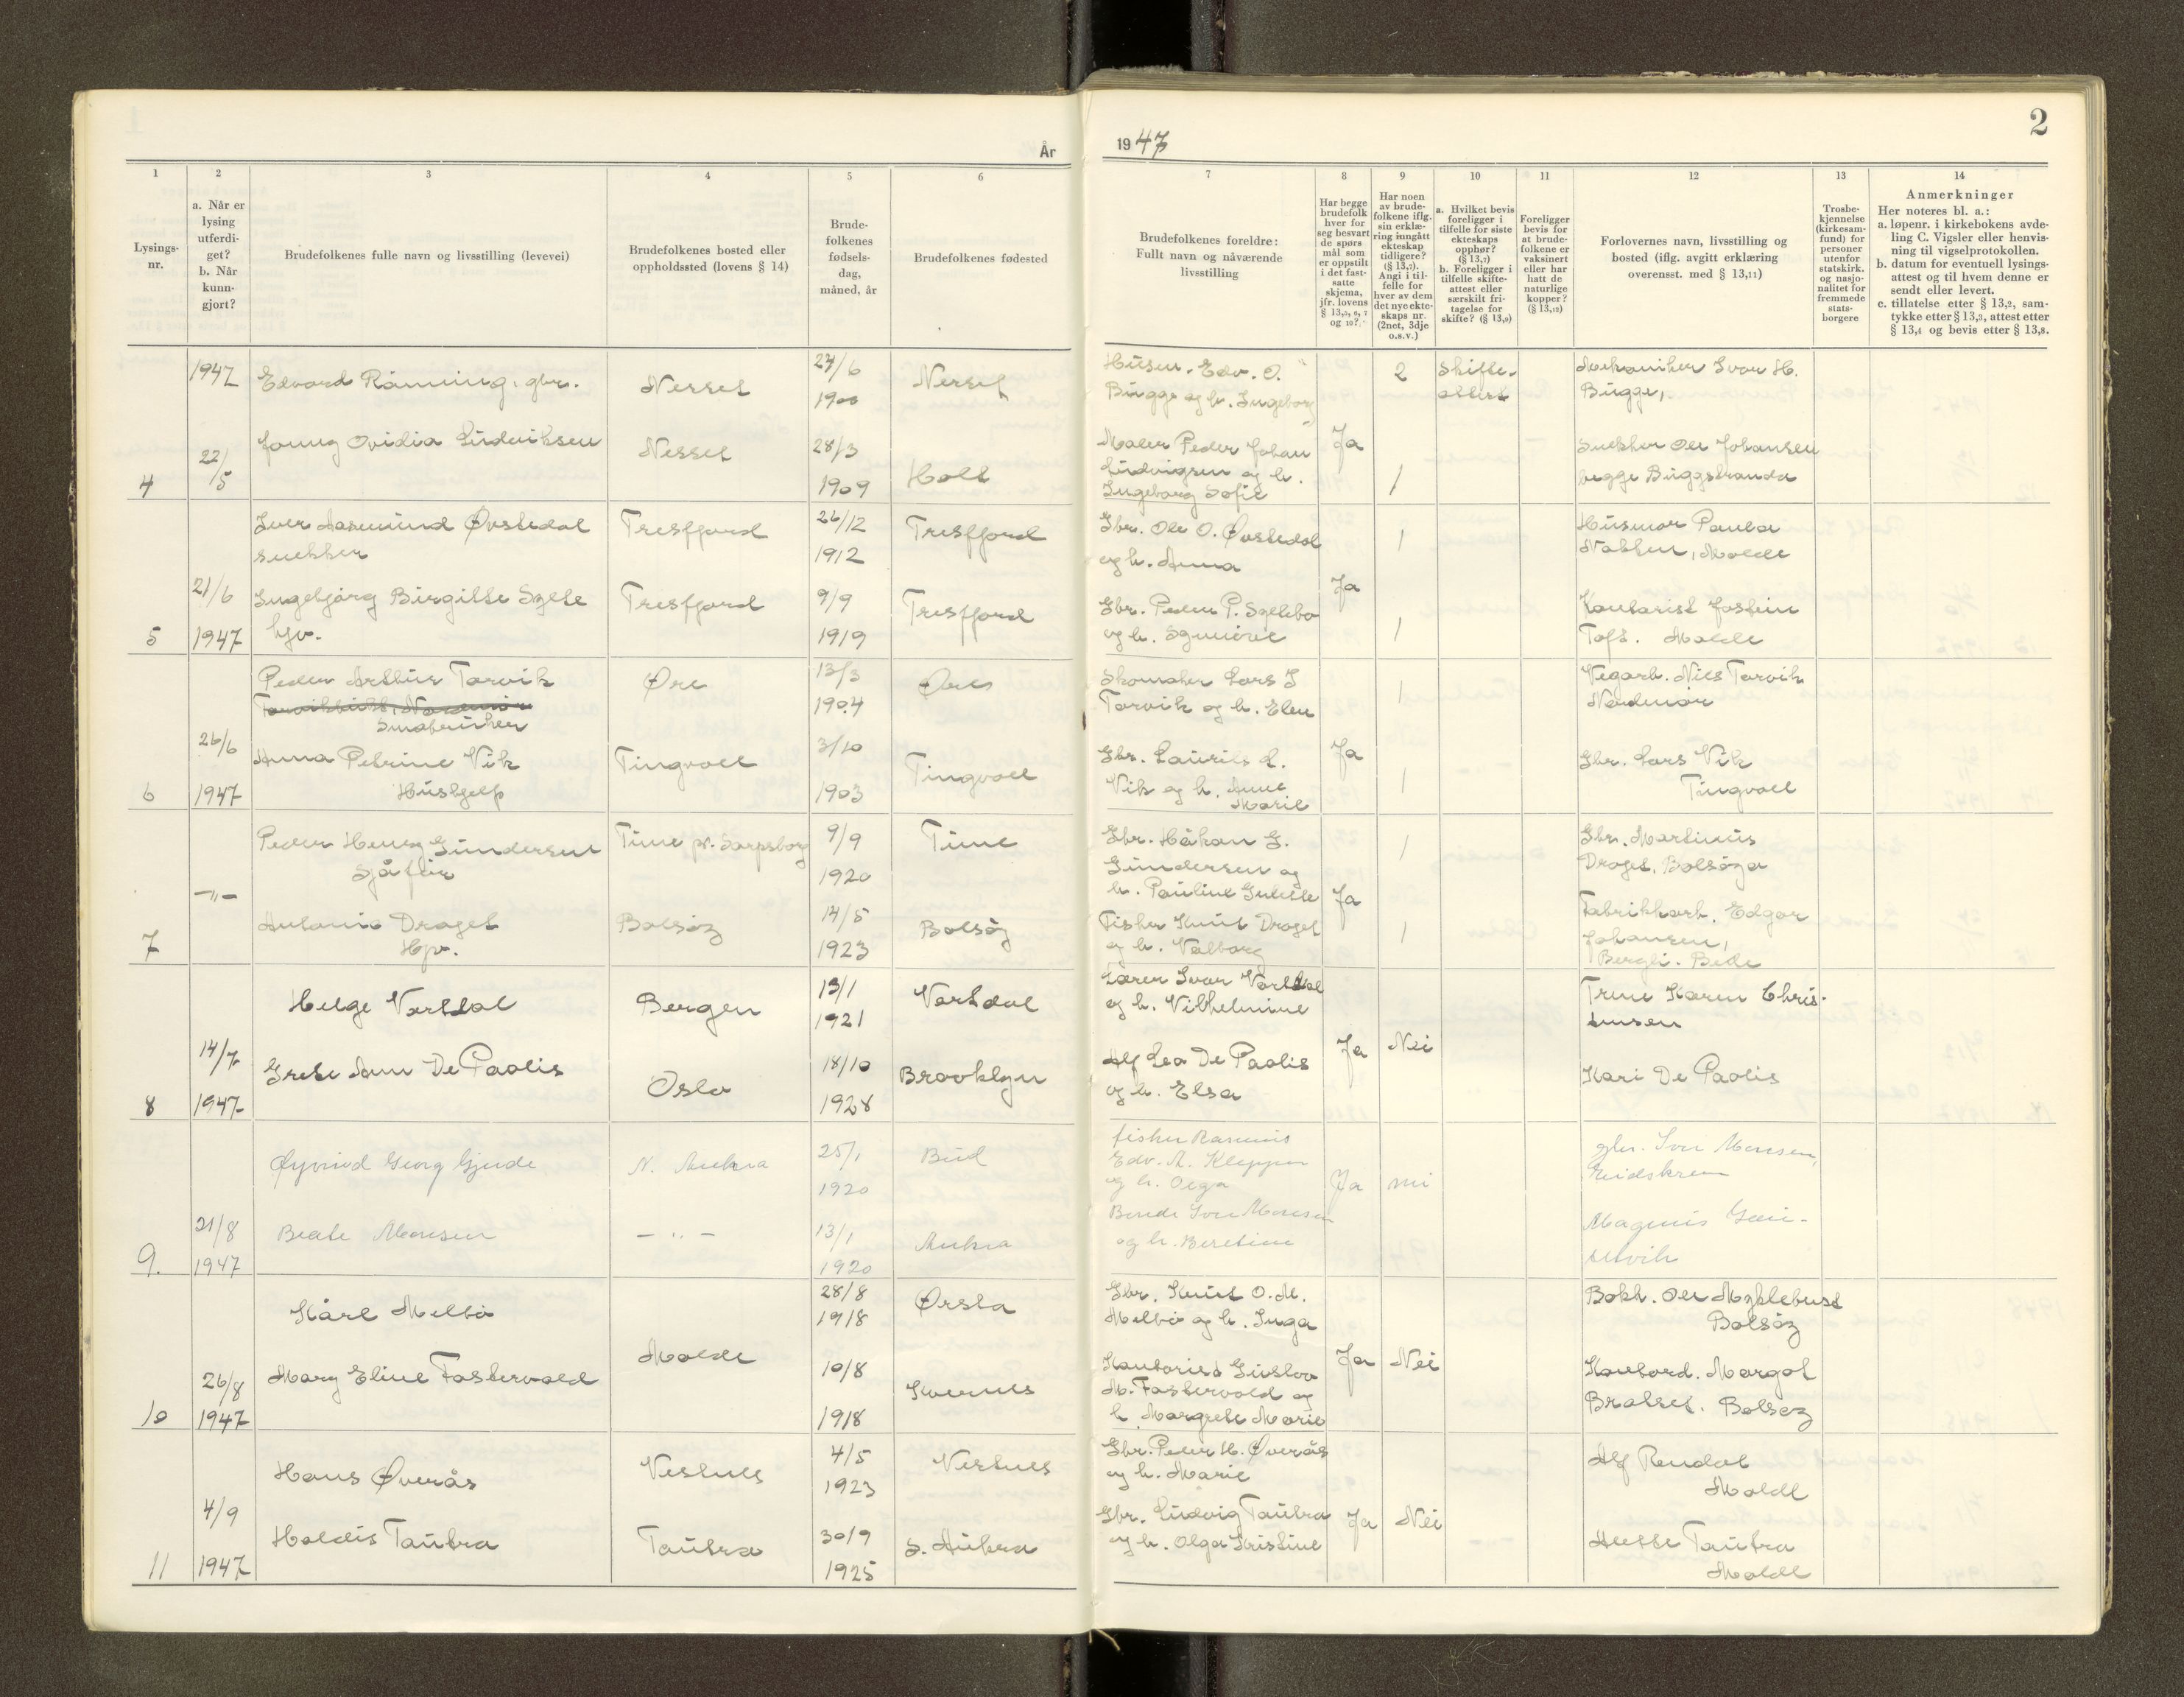 2
År
1947
1
2
3
4
5
6
7
8
9
10
11
12
13
14
Lysings-
nr.
a. Når er
lysing
utferdi-
get?
b. Når
kunn-
gjort?
Brudefolkenes fulle navn og livsstilling (levevei)
Brudefolkenes bosted eller
oppholdssted (lovens § 14)
Brude-
folkenes
fødsels-
dag,
måned, år
Brudefolkenes fødested
Brudefolkenes foreldre:
Fullt navn og nåværende
livsstilling
Har begge
brudefolk
hver for
seg besvart
de spørs
mål som
er oppstilt
i det fast-
satte
skjema,
jfr. lovens
§ 13,5, 6, 7
og 10?
Har noen
av brude-
folkene iflg.
sin erklæ-
ring inngått
ekteskap
tidligere?
(§ 13,7).
Angi i til-
felle for
hver av dem
det nye ekte-
skaps nr.
(2net, 3dje
o.s.v.)
a. Hvilket bevis
foreligger i
tilfelle for siste
ekteskaps
opphør?
(§ 13,7)
b. Foreligger i
tilfelle skifte-
attest eller
særskilt fri-
tagelse for
skifte? (§ 13,9)
Foreligger
bevis for
at brude-
folkene er
vaksinert
eller har
hatt de
naturlige
kopper?
(§ 13,12)
Forlovernes navn, livsstilling og
bosted (iflg. avgitt erklæring
overensst. med § 13,11)
Trosbe-
kjennelse
(kirkesam-
fund) for
personer
utenfor
statskirk.
og nasjo-
nalitet for
fremmede
stats-
borgere
Anmerkninger
Her noteres bl. a.:
a. løpenr. i kirkebokens avde-
ling C. Vigsler eller henvis-
ning til vigselprotokollen.
b. datum for eventuell lysings-
attest og til hvem denne er
sendt eller levert.
c. tillatelse etter § 13,2, sam-
tykke etter § 13,3, attest etter
§ 13,4 og bevis etter § 13,8.
4
1947
22/5
Edvard Rønning, gbr.
Nesset
27/6
1900
Nesset
Husm. Edv. O.
Bugge og h. Ingeborg
2
Skifte-
attest
Mekaniker Ivar H.
Bugge,
Jenny Ovidia Ludviksen
Nesset
28/3
1909
Holt
Maler Peder Johan
Ludvigsen og h.
Ingeborg Sofie
Ja
1
Snekker Ole Johansen
begge Buggstranda
5
21/6
1947
Iver Aasmund Øvstedal
snekker
Tresfjord
26/12
1912
Tresfjord
Gbr. Ole O. Øvstedal
og h. Anna
1
Husmor Paula
Nakken, Molde
Ingebjørg Birgitte Sylte
hjv.
Tresfjord
9/9
1919
Tresfjord
Gbr. Peder P. Syltebø
og h. Synnøve
Ja
1
Kontorist Jostein
Toft. Molde
6
26/6
1947
Peder Arthur Torvik
Småbruker
Øre
13/3
1904
Øre
Skomaker Lars I
Torvik og h. Elen
1
Vegarb. Nils Torvik
Nordmør
Anna Petrine Vik
Hushjelp
Tingvoll
3/10
1903
Tingvoll
Gbr. Laurits L.
Vik og h. Anne
Marie
Ja
1
Gbr. Lars Vik
Tingvoll
7
-"-
Peder Henry Gundersen
Sjåfør
Tune pr. Sarpsborg
9/9
1920
Tune
Gbr. Håkon G.
Gundersen og
h. Pauline
1
Gbr. Martinus
Draget, Bolsøya
Antonie Draget
Hjv.
Bolsøy
14/5
1923
Bolsøy
Fisker Knut Draget
og h. Valborg
Ja
1
Fabrikkarb. Edgar
Johansen,
Bergli.
8
14/7
1947
Helge Vartdal
Bergen
13/1
1921
Vartdal
Lærer Ivar Vartdal
og h. Vilhelmine
Trine Karen Chris-
tensen
Grete Ann De Paolis
Oslo
18/10
1928
Brooklyn
Alf Leo De Paolis
og h. Elsa
Ja
Nei
Kari De Paolis
9.
21/8
1947
Øyvind Georg Gjerde
N. Aukra
25/1
1920
Bud
fisker Rasmus
Edv. A. Klepper
og h. Olga
Ja
nei
gbr. Iver Monsen,
Eidskrem
Beate Monsen
- " -
13/1
1920
Aukra
Bonde Iver Monsen
og h. Beretine
Magnus
10
26/8
1947
Kåre Melbø
28/8
1918
Ørsta
Gbr. Knut O. M.
Melbø og h. Inga
Bokh. Ole Myklebust
Bolsøy
Mary Eline Fostervold
Molde
10/8
1918
Kvernes
Kontorist Gustav
M. Fostervold og
h. Margrete Marie
Ja
Nei
Kontord. Margot
Bratset. Bolsøy
11
4/9
1947
Hans Øverås
Vestnes
4/5
1923
Vestnes
Gbr. Peder H. Øverås
og h. Marie
Alf Rendal
Molde
Haldis Tautra
Tautra
30/9
1925
S. Aukra
Gbr. Ludvig Tautra
og h. Olga Kristine
Ja
Nei
Tautra
Molde